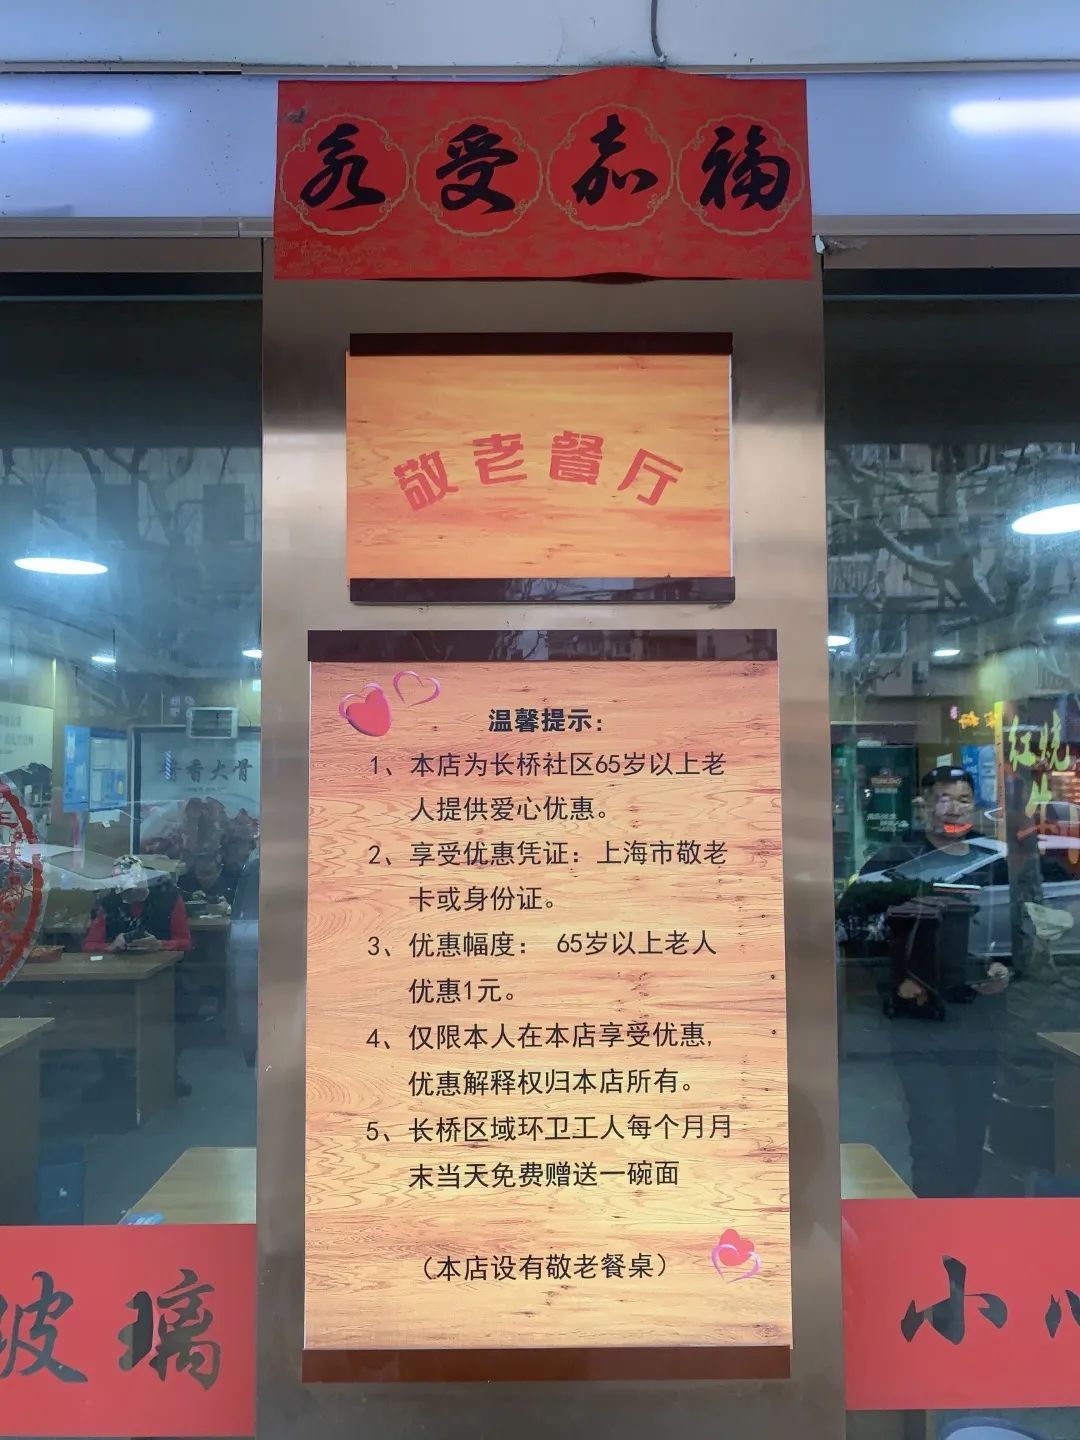 永受嘉福
敬老餐厅
温馨提示：
1、本店为长桥社区65岁以上老
人提供爱心优惠。
2、享受优惠凭证：上海市敬老
卡或身份证。
3、优惠幅度： 65岁以上老人
优惠1元。
4、仅限本人在本店享受优惠,
优惠解释权归本店所有。
5、长桥区域环卫工人每个月月
末当天免费赠送一碗面
（本店设有敬老餐桌）
香大骨
红烧
牛
玻璃
小心